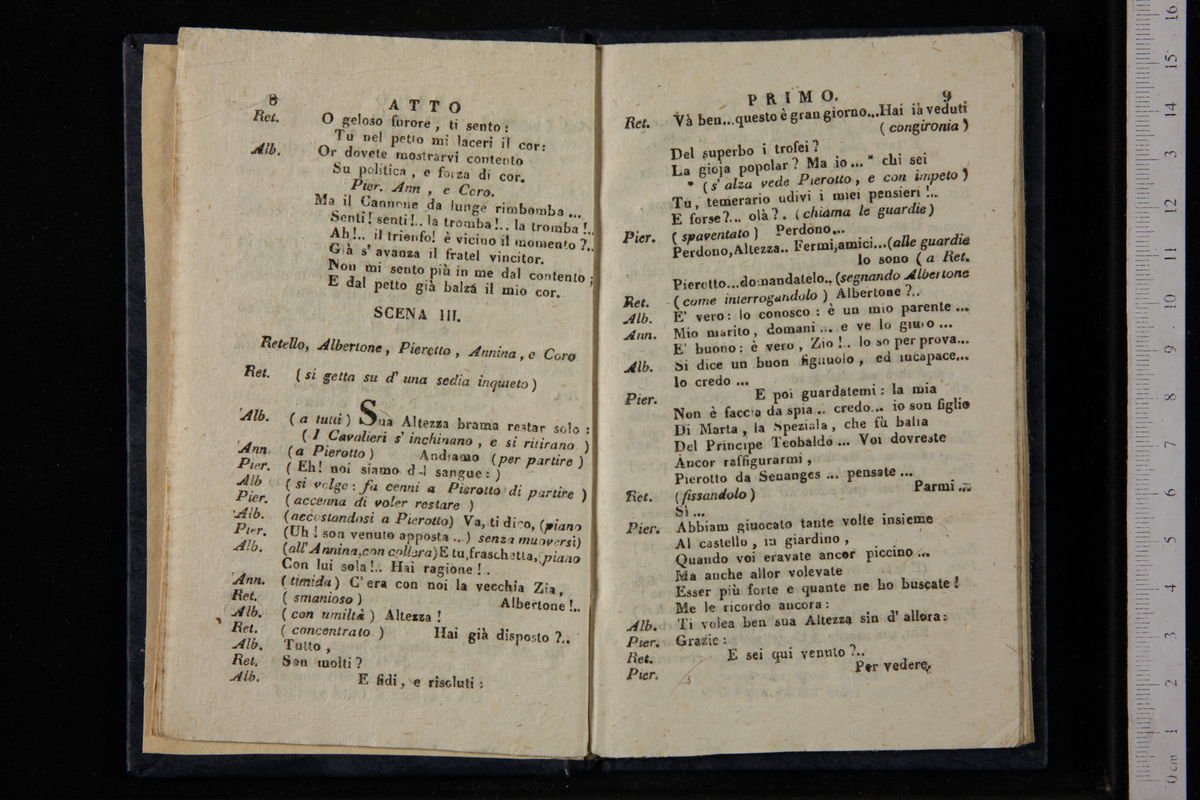 8
ATTO
Ret. O geloso furore, ti sento:
Tu nel petto mi laceri il cor:
Alb. Or dovete mostrarvi contento
Su politica, e forza di cor.
Pier. Ann, e Coro.
Ma il Cannone da lunge rimbomba ...
Senti! senti!.. la tromba!.. la tromba!..
Ah!.. il trionfo! è vicino il momento?..
Già s' avanza il fratel vincitor.
Non mi sento più in me dal contento;
E dal petto già balza il mio cor.
SCENA III.
Retello, Albertone, Pierotto, Annina, e Coro
Ret. (si getta su d' una sedia inquieto)
Alb. (a tutti) Sua Altezza brama restar solo:
(I Cavalieri s' inchinano, e si ritirano)
Ann. (a Pierotto) Andiamo (per partire)
Pier. (Eh! noi siamo del sangue:)
Alb (si volge: fa cenni a Pierotto di partire)
Pier. (accenna di voler restare)
Alb. (accostandosi a Pierotto) Va, ti dico, (piano
Pier. (Uh! son venuto apposta ...) senza muoversi)
Alb. (all' Annina, con collera) E tu, fraschetta, (piano
Con lui sola!.. Hai ragione!.
Ann. (timida) C' era con noi la vecchia Zia,
Ret. (smanioso) Albertone!..
Alb. (con umiltà) Altezza!
Ret. (concentrato) Hai già disposto?..
Alb. Tutto,
Ret. Son molti?
Alb. E fidi, e risoluti:
PRIMO.
9
Ret. Và ben...questo è gran giorno...Hai ià veduti
(congironia)
Del superbo i trofei?
La gioja popolar? Ma io... * chi sei
* (s' alza vede Pierotto, e con impeto)
Tu, temerario udivi i miei pensieri!..
E forse?... olà?. (chiama le guardie)
Pier. (spaventato) Perdono...
Perdono, Altezza.. Fermi, amici...(alle guardie
Io sono (a Ret.
Pierotto...domandatelo., (segnando Albertone
Ret. (come interrogandolo) Albertone?..
Alb. E' vero: lo conosco: è un mio parente ...
Ann. Mio marito, domani ... e ve lo giuro ...
E' buono: è vero, Zio!.. lo so per prova...
Alb. Si dice un buon figliuolo, ed incapace...
Io credo ...
Pier. E poi guardatemi: la mia
Non è faccia da spia .. credo... io son figlio
Di Marta, la Speziala, che fù balia
Del Principe Teobaldo ... Voi dovreste
Ancor raffigurarmi,
Pierotto da Senanges ... pensate ...
Ret. (fissandolo) Parmi ...
Sì ...
Pier. Abbiam giuocato tante volte insieme
Al castello, in giardino,
Quando voi eravate ancor piccino ...
Ma anche allor volevate
Esser più forte e quante ne ho buscate!
Me le ricordo ancora:
Alb. Ti volea ben sua Altezza sin d' allora:
Pier. Grazie:
Ret. E sei qui venuto?..
Pier. Per vedere,
0 cm 1 2 3 4 5 6 7 8 9 10 11 12 13 14 15 16